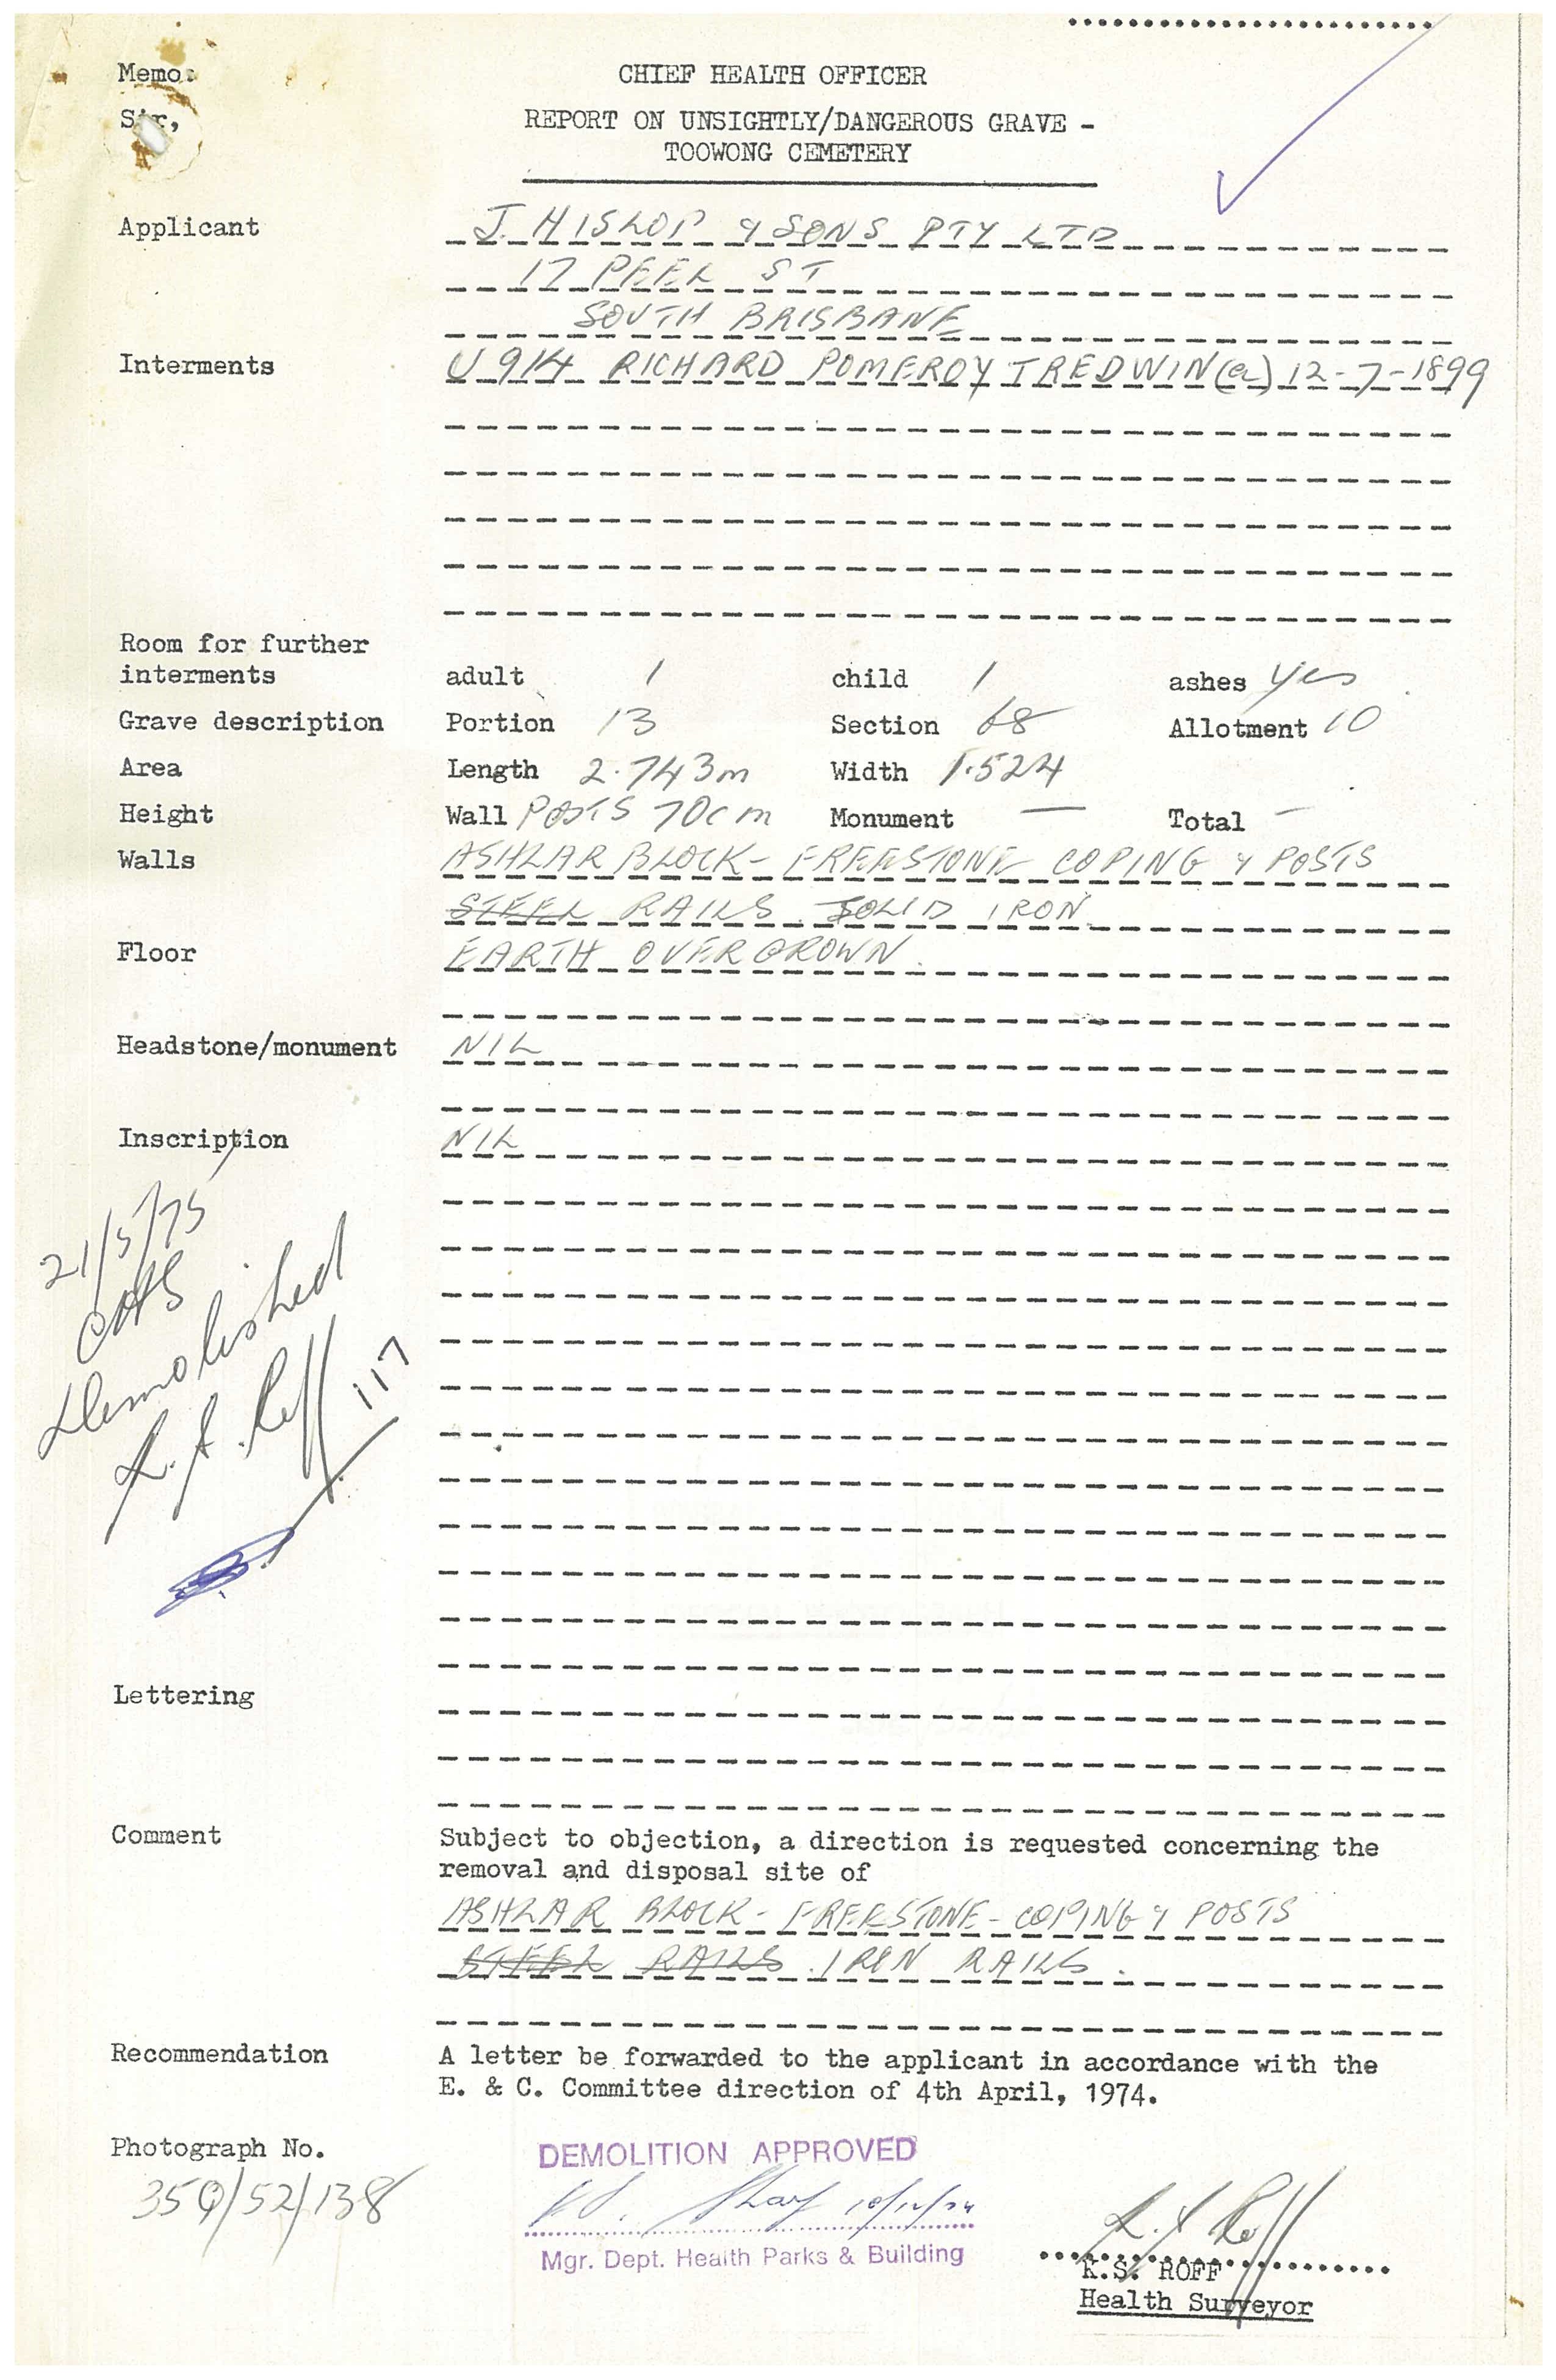 Memo:
CHIEF HEALTH OFFICER
Sir,
REPORT ON UNSIGHTLY/DANGEROUS GRAVE -
TOOWONG CEMETERY
Applicant J. HISLOP & SONS PTY LTD
17 PEEL ST
SOUTH BRISBANE
Interments U 914 RICHARD POMEROY TREDWIN (a) 12-7-1899
Room for further
interments adult 1 child 1 ashes yes
Grave description Portion 13 Section 68 Allotment 10
Area Length 2.743m Width 1.524
Height Wall POSTS 70cm Monument — Total —
Walls ASHLAR BLOCK - FREESTONE COPING & POSTS
STEEL RAILS SOLID IRON
Floor EARTH OVERGROWN.
Headstone/monument NIL
Inscription NIL
21/5/75
CHS
Demolished
K.S. Roff 117
Lettering
Comment Subject to objection, a direction is requested concerning the
removal and disposal site of
ASHLAR BLOCK - FREESTONE - COPING & POSTS
STEEL RAILS. IRON RAILS.
Recommendation A letter be forwarded to the applicant in accordance with the
E. & C. Committee direction of 4th April, 1974.
Photograph No. DEMOLITION APPROVED
35Q/52/138
10/12/74
Mgr. Dept. Health Parks & Building
K.S. Roff
K.S. ROFF
Health Surveyor